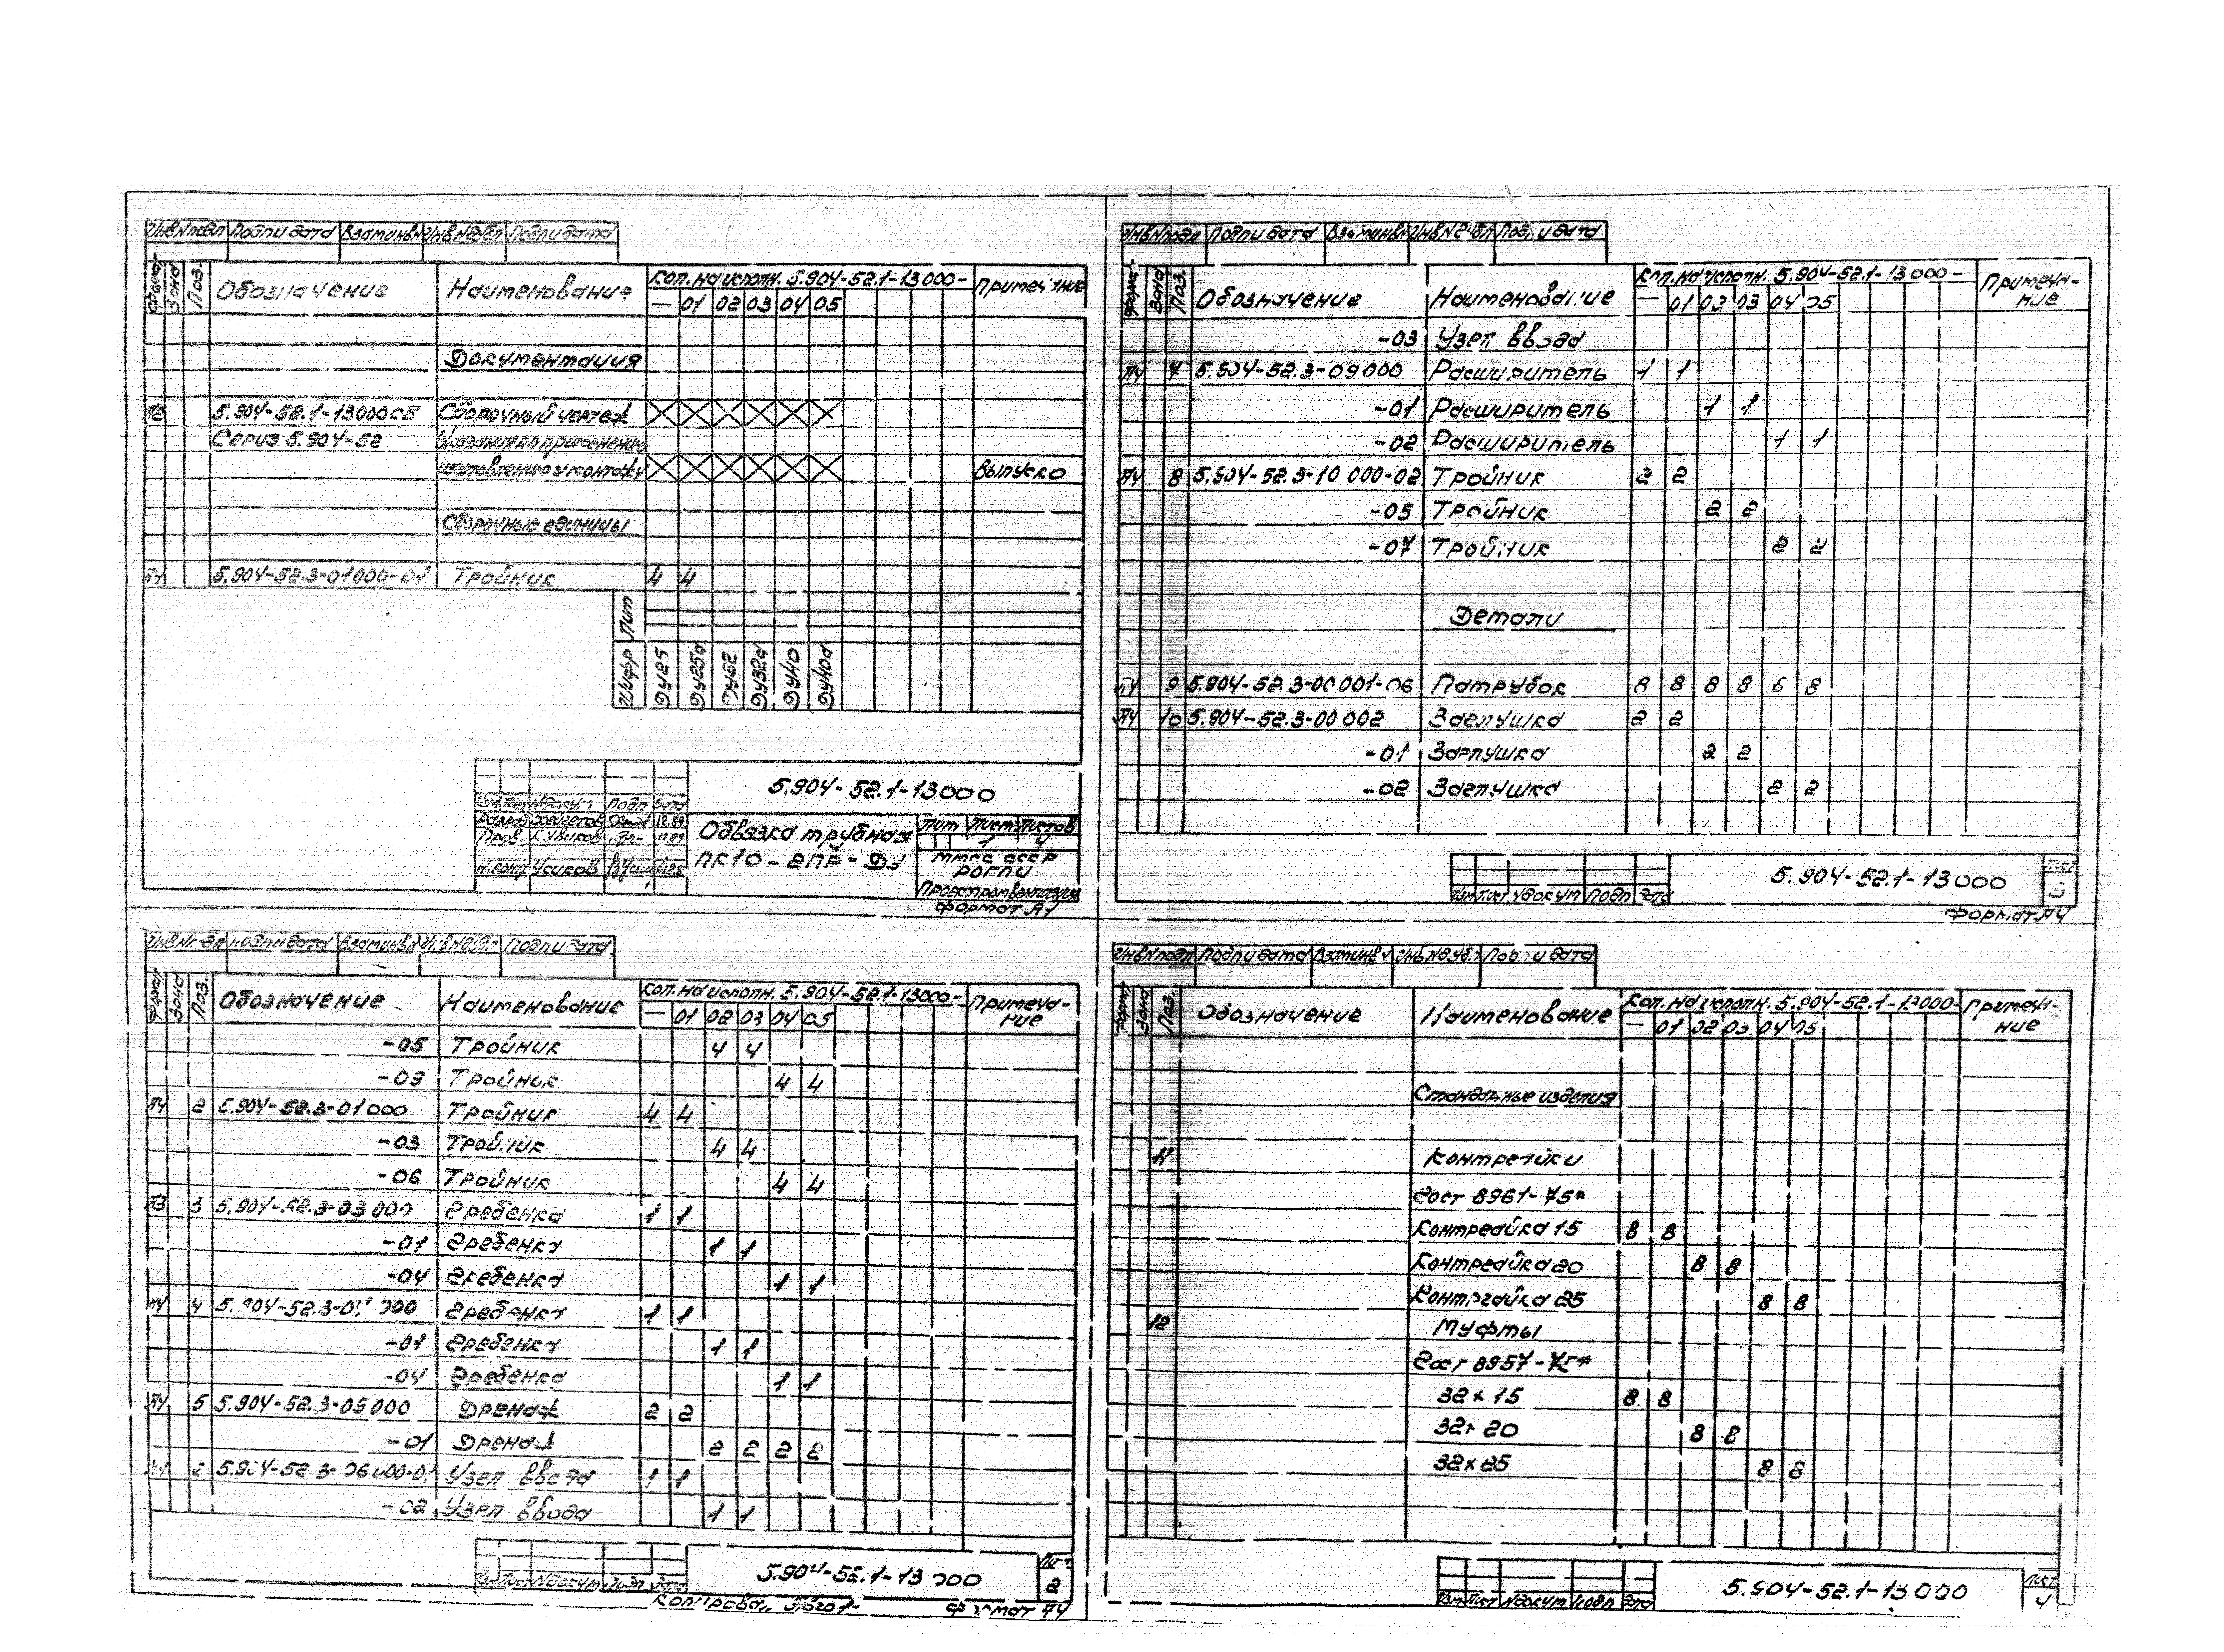 Подп и дата
Обозначение Наименование Кол. на исполн. 5.904-52.1-13000-
— 01 02 03 04 05
Документация
5.904-52.1-13000СБ Сборочный чертеж
Серия 5.904-52 Указания по применению
изготовлению и монтажу Выпуск 0
Сборочные единицы
А4 5.904-52.3-01000-01 Тройник 4 4
Лит
Шифр Ду25 Ду25а Ду32 Ду32а Ду40 Ду40а
5.904-52.1-13000
Обвязка трубная
ПК10-2ПР-Ду
Лит Лист Листов
1 4
Н.конт Усиков
Формат А4
Подп и дата
Обозначение Наименование Кол. на исполн. 5.904-52.1-13000- Примеча-
ние
— 01 02 03 04 05
-05 Тройник 4 4
-09 Тройник 4 4
А4 2 5.904-52.3-01000 Тройник 4 4
-03 Тройник 4 4
-06 Тройник 4 4
А3 3 5.904-52.3-03000 Гребенка 1 1
-01 Гребенка 1 1
-04 Гребенка 1 1
А4 4 Гребенка 1 1
-01 Гребенка 1 1
-04 Гребенка 1 1
А4 5 5.904-52.3-05000 Дренаж 2 2
-01 Дренаж 2 2 2 2
Узел ввода 1 1
-02 Узел ввода 1 1
5.904-52.1-13000 Лист
2
Копировал Формат А4
Подп и дата
Обозначение Наименование Кол. на исполн. 5.904-52.1-13000- Примеча-
ние
— 01 02 03 04 05
-03 Узел ввода
А4 7 5.904-52.3-09000 Расширитель 1 1
-01 Расширитель 1 1
-02 Расширитель 1 1
А4 8 5.904-52.3-10000-02 Тройник 2 2
-05 Тройник 2 2
-07 Тройник 2 2
Детали
9 5.904-52.3-00001-06 Патрубок 8 8 8 8 8 8
А4 10 5.904-52.3-00002 Заглушка 2 2
-01 Заглушка 2 2
-02 Заглушка 2 2
5.904-52.1-13000 Лист
3
Формат А4
Подп и дата
Обозначение Наименование Кол. на исполн. 5.904-52.1-13000-
— 01 02 03 04 05
Стандартные изделия
11 Контргайки
Гост 8961-75*
Контргайка 15 8 8
Контргайка 20 8 8
Контргайка 25 8 8
12 Муфты
Гост 8957-75*
32×15 8 8
32×20 8 8
32×25 8 8
5.904-52.1-13000 Лист
4